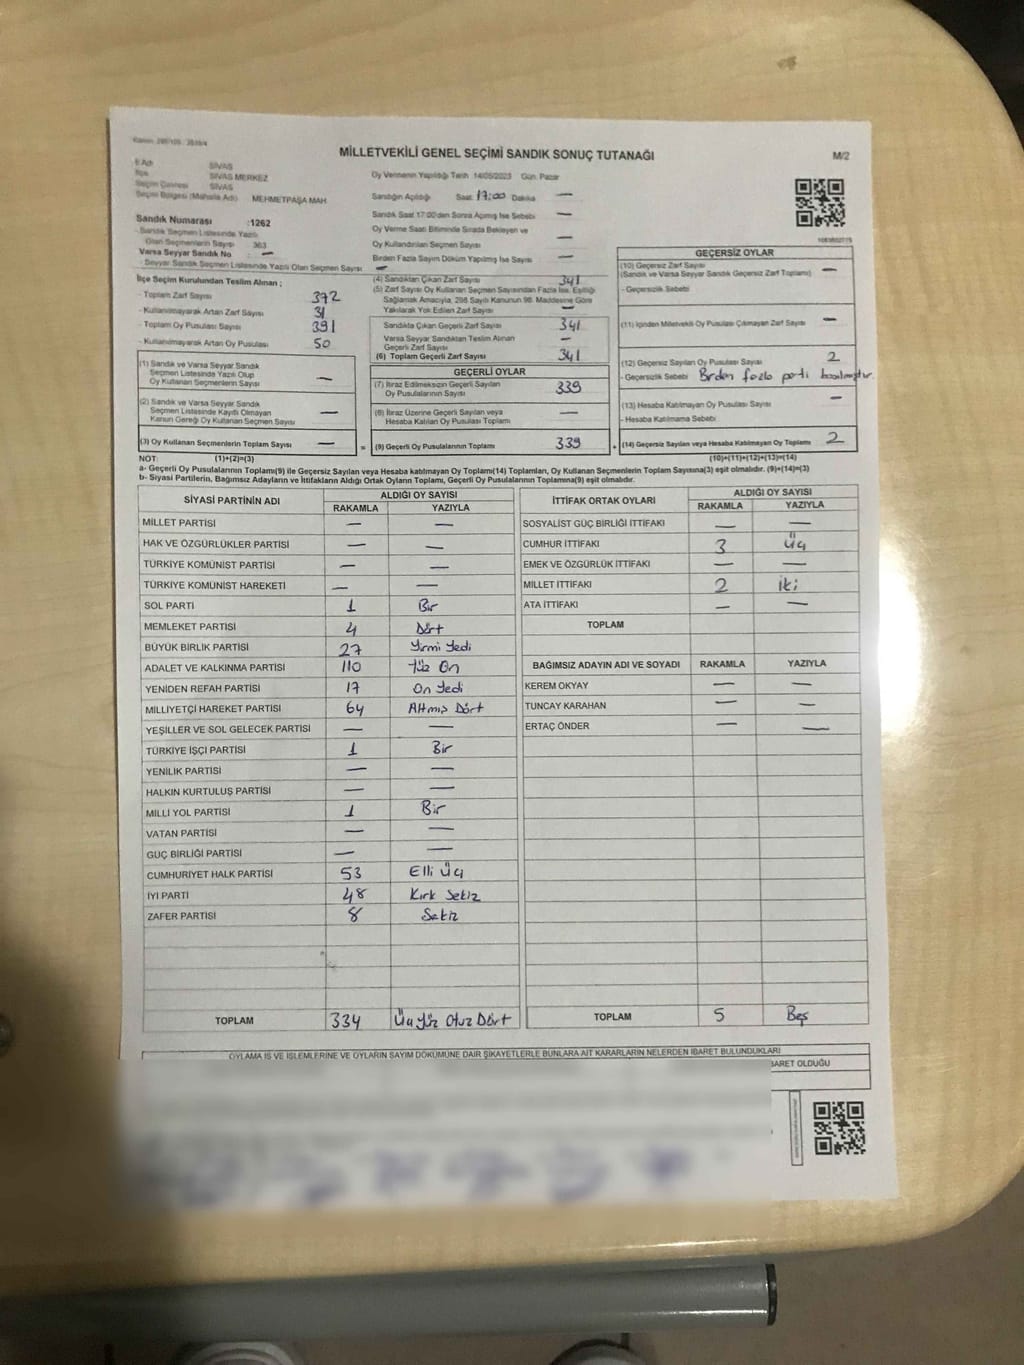 MİLLETVEKİLİ GENEL SEÇİMİ SANDIK SONUÇ TUTANAĞI
M/2
İl Adı SİVAS
İlçe SİVAS MERKEZ
Seçim Çevresi SİVAS
Seçim Bölgesi (Mahalle Adı) MEHMETPAŞA MAH
Sandık Numarası :1262
- Sandık Seçmen Listesinde Yazılı
Olan Seçmenlerin Sayısı 363
Varsa Seyyar Sandık No : —
- Seyyar Sandık Seçmen Listesinde Yazılı Olan Seçmen Sayısı —
İlçe Seçim Kurulundan Teslim Alınan ;
- Toplam Zarf Sayısı 372
- Kullanılmayarak Artan Zarf Sayısı 31
- Toplam Oy Pusulası Sayısı 391
- Kullanılmayarak Artan Oy Pusulası 50
(1) Sandık ve Varsa Seyyar Sandık
Seçmen Listesinde Yazılı Olup
Oy Kullanan Seçmenlerin Sayısı —
(2) Sandık ve Varsa Seyyar Sandık
Seçmen Listesinde Kayıtlı Olmayan
Kanun Gereği Oy Kullanan Seçmen Sayısı —
(3) Oy Kullanan Seçmenlerin Toplam Sayısı —
Oy Vermenin Yapıldığı Tarih 14/05/2023 Gün: Pazar
Sandığın Açıldığı Saat: 17:00 Dakika —
Sandık Saat 17:00'den Sonra Açılmış İse Sebebi —
Oy Verme Saati Bitiminde Sırada Bekleyen ve
Oy Kullandırılan Seçmen Sayısı —
Birden Fazla Sayım Döküm Yapılmış İse Sayısı —
(4) Sandıktan Çıkan Zarf Sayısı 341
(5) Zarf Sayısı Oy Kullanan Seçmen Sayısından Fazla İse, Eşitliği
Sağlamak Amacıyla, 298 Sayılı Kanunun 98. Maddesine Göre
Yakılarak Yok Edilen Zarf Sayısı —
Sandıkta Çıkan Geçerli Zarf Sayısı 341
Varsa Seyyar Sandıktan Teslim Alınan
Geçerli Zarf Sayısı —
(6) Toplam Geçerli Zarf Sayısı 341
GEÇERLİ OYLAR
(7) İtiraz Edilmeksizin Geçerli Sayılan
Oy Pusulalarının Sayısı 339
(8) İtiraz Üzerine Geçerli Sayılan veya
Hesaba Katılan Oy Pusulası Toplamı —
= (9) Geçerli Oy Pusulalarının Toplamı 339
1083802775
GEÇERSİZ OYLAR
(10) Geçersiz Zarf Sayısı
(Sandık ve Varsa Seyyar Sandık Geçersiz Zarf Toplamı) —
- Geçersizlik Sebebi
(11) İçinden Milletvekili Oy Pusulası Çıkmayan Zarf Sayısı —
(12) Geçersiz Sayılan Oy Pusulası Sayısı 2
- Geçersizlik Sebebi Birden fazla parti basılmıştır.
(13) Hesaba Katılmayan Oy Pusulası Sayısı —
- Hesaba Katılmama Sebebi
+ (14) Geçersiz Sayılan veya Hesaba Katılmayan Oy Toplamı 2
NOT: (1)+(2)=(3) (10)+(11)+(12)+(13)=(14)
a- Geçerli Oy Pusulalarının Toplamı(9) ile Geçersiz Sayılan veya Hesaba katılmayan Oy Toplamı(14) Toplamları, Oy Kullanan Seçmenlerin Toplam Sayısına(3) eşit olmalıdır. (9)+(14)=(3)
b- Siyasi Partilerin, Bağımsız Adayların ve İttifakların Aldığı Ortak Oyların Toplamı, Geçerli Oy Pusulalarının Toplamına(9) eşit olmalıdır.
SİYASİ PARTİNİN ADI ALDIĞI OY SAYISI
RAKAMLA YAZIYLA
MİLLET PARTİSİ — —
HAK VE ÖZGÜRLÜKLER PARTİSİ — —
TÜRKİYE KOMÜNİST PARTİSİ — —
TÜRKİYE KOMÜNİST HAREKETİ — —
SOL PARTİ 1 Bir
MEMLEKET PARTİSİ 4 Dört
BÜYÜK BİRLİK PARTİSİ 27 Yirmi Yedi
ADALET VE KALKINMA PARTİSİ 110 Yüz On
YENİDEN REFAH PARTİSİ 17 On Yedi
MİLLİYETÇİ HAREKET PARTİSİ 64 Altmış Dört
YEŞİLLER VE SOL GELECEK PARTİSİ — —
TÜRKİYE İŞÇİ PARTİSİ 1 Bir
YENİLİK PARTİSİ — —
HALKIN KURTULUŞ PARTİSİ — —
MİLLİ YOL PARTİSİ 1 Bir
VATAN PARTİSİ — —
GÜÇ BİRLİĞİ PARTİSİ — —
CUMHURİYET HALK PARTİSİ 53 Elli Üç
İYİ PARTİ 48 Kırk Sekiz
ZAFER PARTİSİ 8 Sekiz
TOPLAM 334 Üç Yüz Otuz Dört
İTTİFAK ORTAK OYLARI ALDIĞI OY SAYISI
RAKAMLA YAZIYLA
SOSYALİST GÜÇ BİRLİĞİ İTTİFAKI — —
CUMHUR İTTİFAKI 3 Üç
EMEK VE ÖZGÜRLÜK İTTİFAKI — —
MİLLET İTTİFAKI 2 İki
ATA İTTİFAKI — —
TOPLAM
BAĞIMSIZ ADAYIN ADI VE SOYADI RAKAMLA YAZIYLA
KEREM OKYAY — —
TUNCAY KARAHAN — —
ERTAÇ ÖNDER — —
TOPLAM 5 Beş
OYLAMA İŞ VE İŞLEMLERİNE VE OYLARIN SAYIM DÖKÜMÜNE DAİR ŞİKAYETLERLE BUNLARA AİT KARARLARIN NELERDEN İBARET BULUNDUKLARI
BARET OLDUĞU